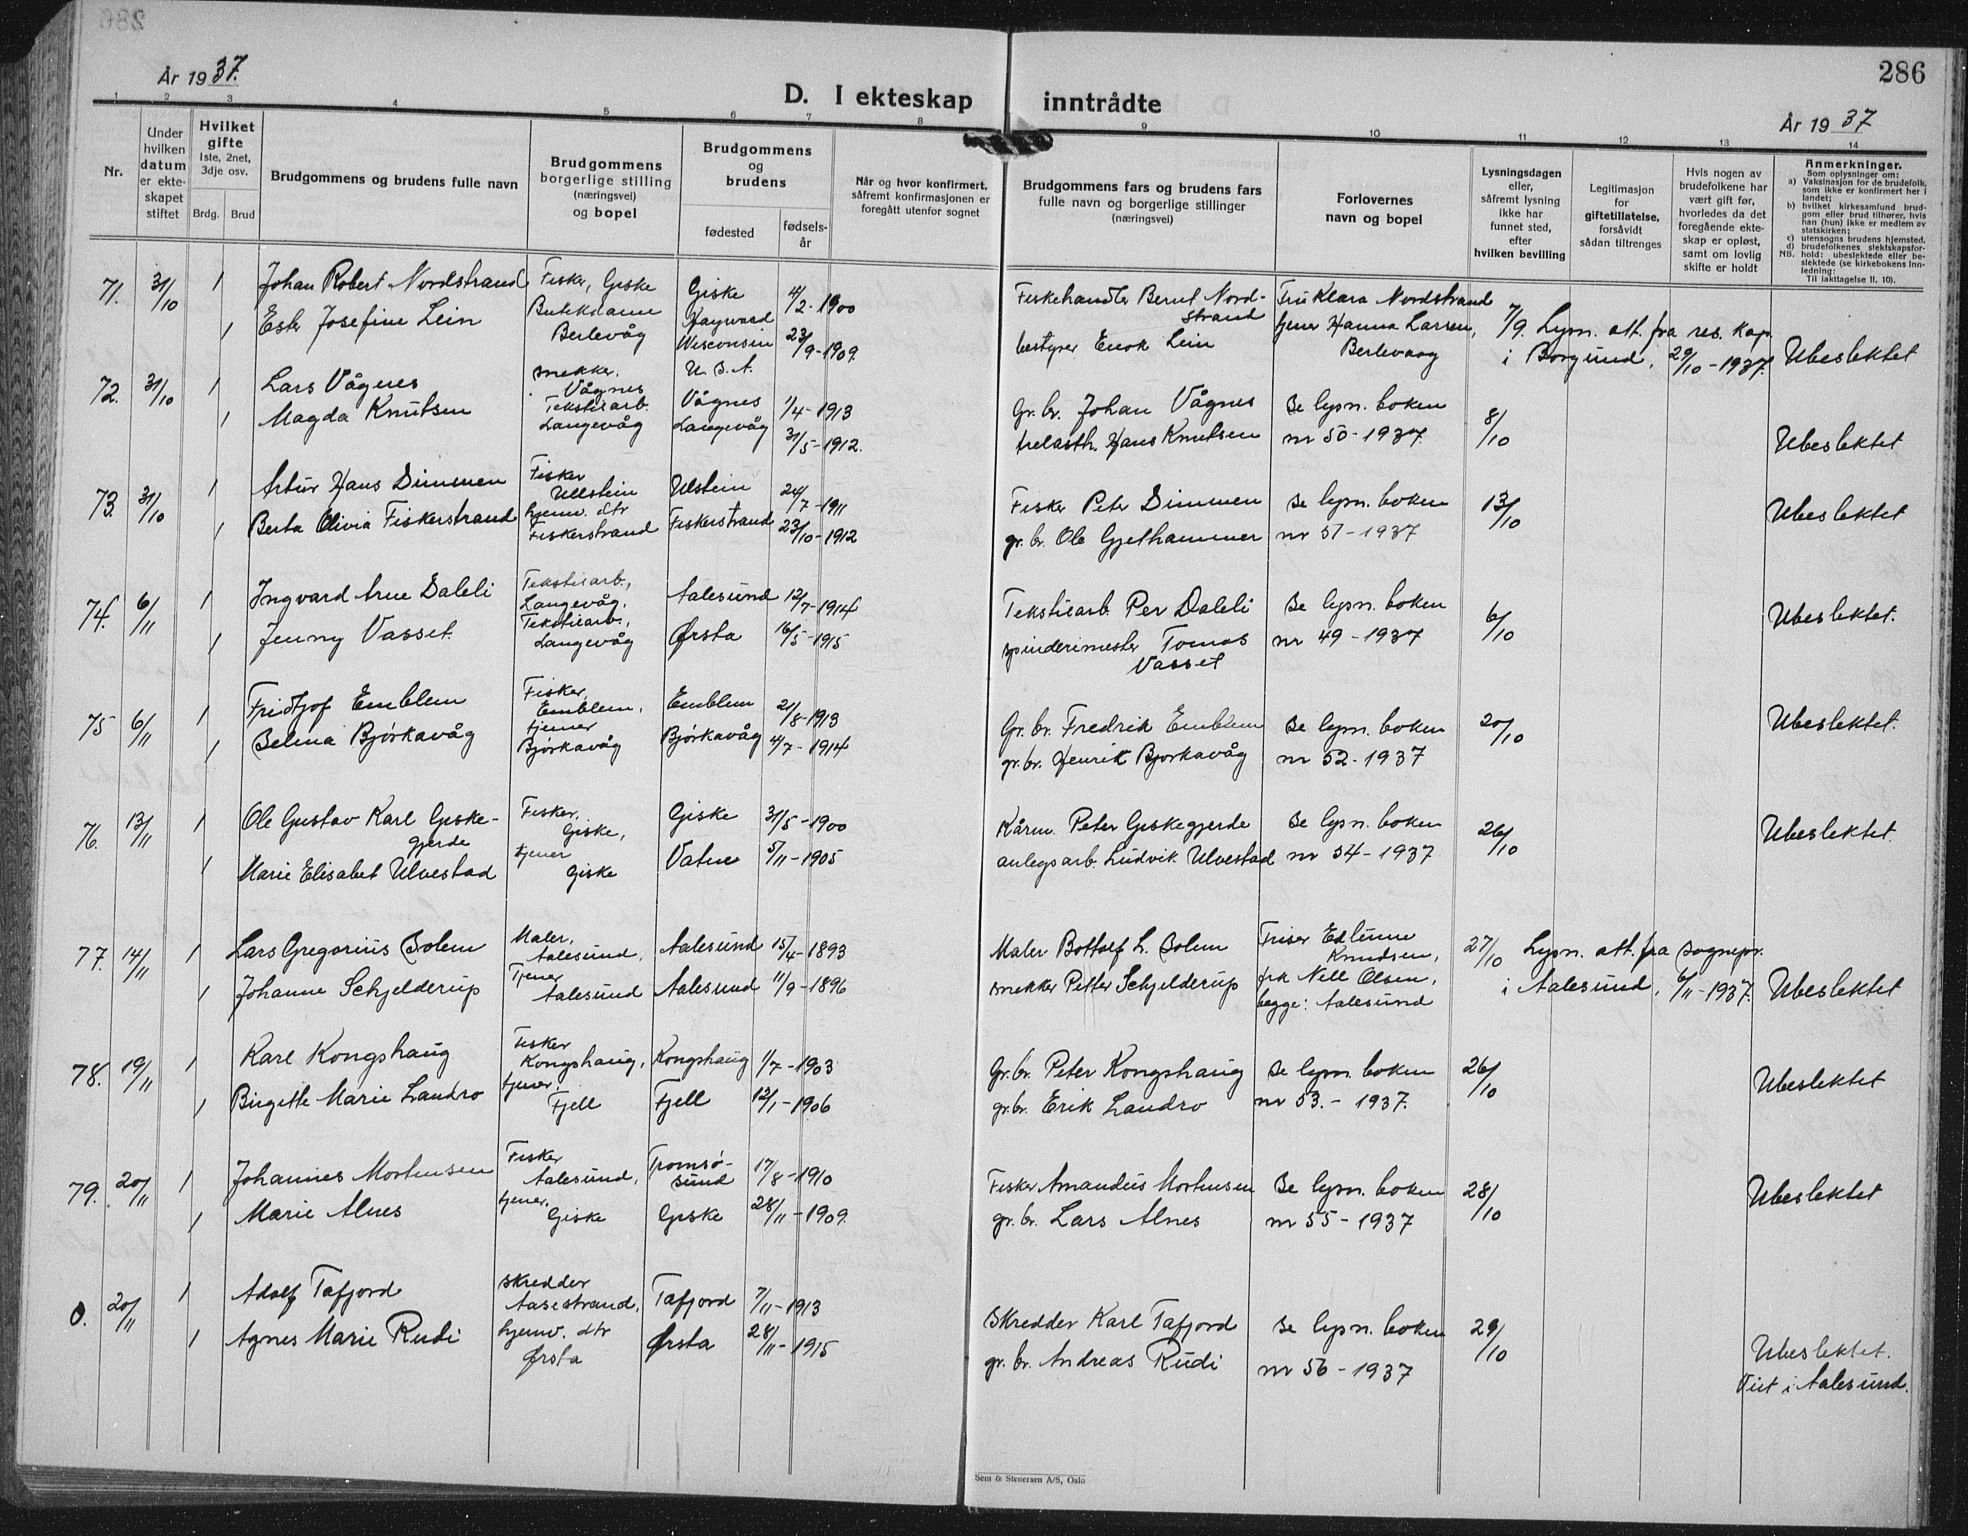 286
År 1937.
D. I ekteskap inntrådte
År 1937
1 2 3 4 5 6 7 8 9 10 11 12 13 14
Nr.
Under hvilken datum er ekteskapet stiftet
Hvilket gifte 1ste, 2net, 3dje osv.
Brdg. Brud
Brudgommens og brudens fulle navn
Brudgommens borgerlige stilling (næringsvei) og bopel
Brudgommens og brudens
fødested
fødselsår
Når og hvor konfirmert, såfremt konfirmasjonen er foregått utenfor sognet
Brudgommens fars og brudens fars fulle navn og borgerlige stillinger (næringsvei)
Forlovernes navn og bopel
Lysningsdagen eller, såfremt lysning ikke har funnet sted, efter hvilken bevilling
Legitimasjon for giftetillatelse, forsåvidt sådan tiltrenges
Hvis nogen av brudefolkene har vært gift før, hvorledes da det foregående ekteskap er opløst, samt om lovlig skifte er holdt
Anmerkninger.
Som oplysninger om:
a) Vaksinasjon for de brudefolk, som ikke er konfirmert her i landet;
b) hvilket kirkesamfund brudgom eller brud tilhører, hvis han (hun) ikke er medlem av statskirken;
c) utensogns brudens hjemsted.
d) brudefolkenes slektskapsforhold: ubeslektede eller beslektede (se kirkebokens innledning:
NB. Til iakttagelse II, 10).
71. 31/10 1 Johan Robert Nordstrand Fisker, Giske Giske 4/2-1900 Fiskehandler Bernt Nordstrand Fru Klara Nordstrand 7/9. Lysn. att. fra res. kap.
1 Ester Josefine Lein Butikdame Berlevåg Hayward Wisconsin U.S.A. 23/9-1909. bestyrer Enok Lein tjener Hanna Larsen, Berlevaag i Borgund, 29/10-1937. Ubeslektet
72. 31/10 1 Lars Vågnes snekker. Vågnes Vågnes 1/4-1913 Gr. br. Johan Vågnes Se lysn. boken 8/10
1 Magda Knutsen Tekstilarb. Langevåg Langevåg 31/5-1912. trelasth. Hans Knutsen nr 50-1937. Ubeslektet
73. 31/10 1 Artur Hans Dimmen Fisker Ullstein Ulstein 24/7-1911 Fisker Peter Dimmen Se lysn. boken 13/10 Ubeslektet
1 Berta Olivia Fiskerstrand hjemv. dtr Fiskerstrand Fiskerstrand 23/10-1912 gr. br. Ole Gjethammer nr 51-1937
74. 6/11 1 Ingvard Arne Daleli Tekstilarb., Langevåg. Aalesund 12/7-1914 Tekstilarb. Per Daleli Se lysn. boken 6/10 Ubeslektet.
1 Jenny Vasset. Tekstilarb., Langevåg Ørsta 16/5-1915 spinderimester Tomas Vasset nr 49-1937
75 6/11 1 Fridtjof Emblem Fisker, Emblem, Emblem 21/8-1913 Gr. br. Fredrik Emblem Se lysn. boken 20/10 Ubeslektet.
1 Selma Bjørkavåg tjener Bjørkavåg Bjørkavåg 4/7-1914 gr. br. Henrik Bjørkavåg nr 52-1937
76. 13/11 1 Ole Gustav Karl Giskegjerde Fisker, Giske, Giske 31/5-1900 Kårm. Peter Giskegjerde Se lysn. boken 26/10 Ubeslektet.
1 Marie Elisabet Ulvestad tjener Giske Vatne 5/11-1905 anlegsarb. Ludvik Ulvestad nr 54-1937
77. 14/11 1 Lars Gregorius Solem Maler, Aalesund, Aalesund 15/4-1893 Maler Bottolf L. Solem Knudsen, 27/10 Lysn. att. fra sognepr.
1 Johanne Schjelderup Tjener Aalesund Aalesund 11/9-1896 snekker Petter Schjelderup frk Nell Olsen, begge: Aalesund i Aalesund, 6/11-1937. Ubeslektet
78. 19/11 1 Karl Kongshaug Fisker Kongshaug, Kongshaug 1/7-1903 Gr. br. Peter Kongshaug Se lysn. boken 26/10 Ubeslektet
1 Birgitte Marie Landro tjener, Fjell Fjell 12/1-1906 gr. br. Erik Landro nr 53.-1937.
79. 20/11 1 Johannes Mortensen Fisker Aalesund, Tromsøsund 17/8-1910 Fisker Amandus Mortensen Se lysn. boken 28/10 Ubeslektet
1 Marie Alnes tjener, Giske Giske 28/11-1909. gr. br. Lars Alnes nr 55-1937
0. 20/11 1 Adolf Tafjord Skredder Aasestrand, Tafjord 7/11-1913 Skredder Karl Tafjord Se lysn. boken 29/10
1 Agnes Marie Rudi hjemv. dtr Ørsta Ørsta 28/11-1915 gr. br. Andreas Rudi nr 56-1937 Ubeslektet. Viet i Aalesund.
Sem & Stenersen A/S, Oslo